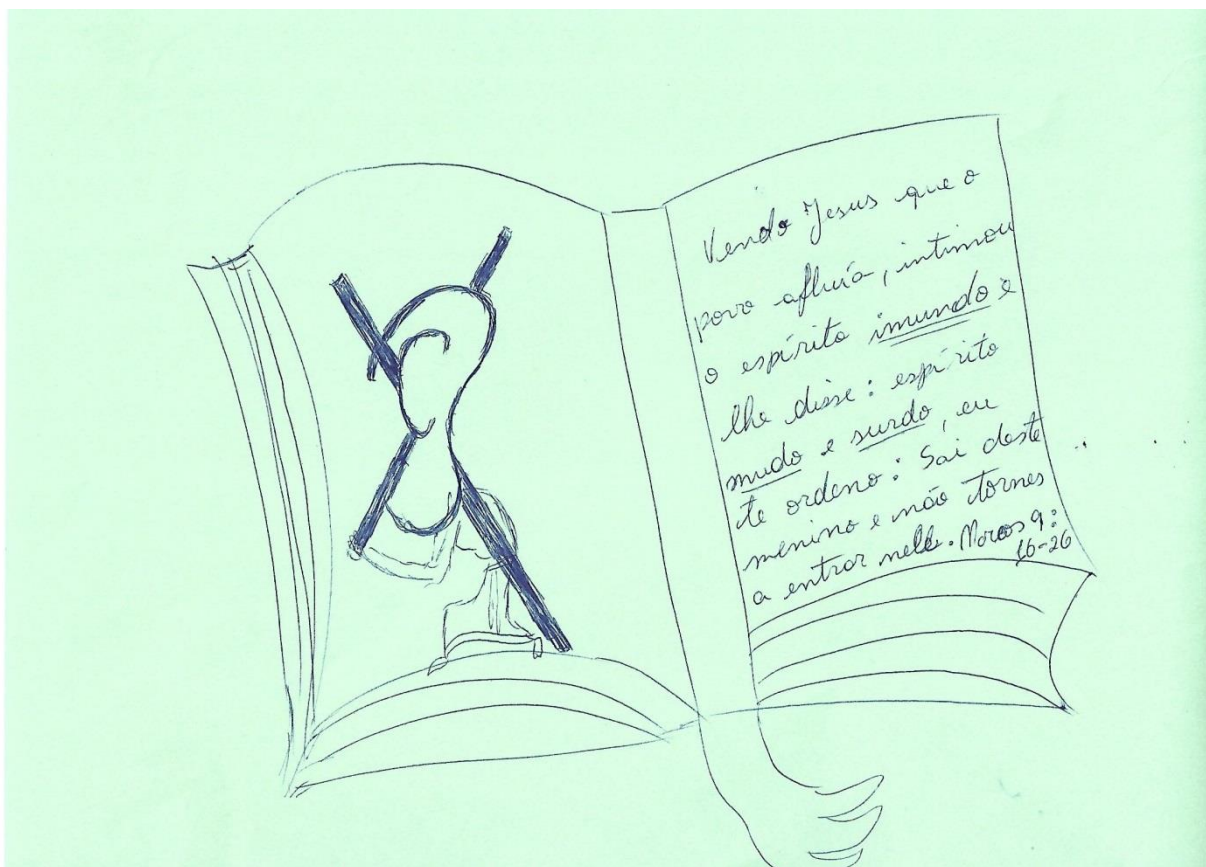 Vendo Jesus que o
povo afluía, intimou
o espírito imundo e
lhe disse: espírito
mudo e surdo, eu
te ordeno: Sai deste
menino e não tornes
a entrar nele. Marcos 9:
16-26